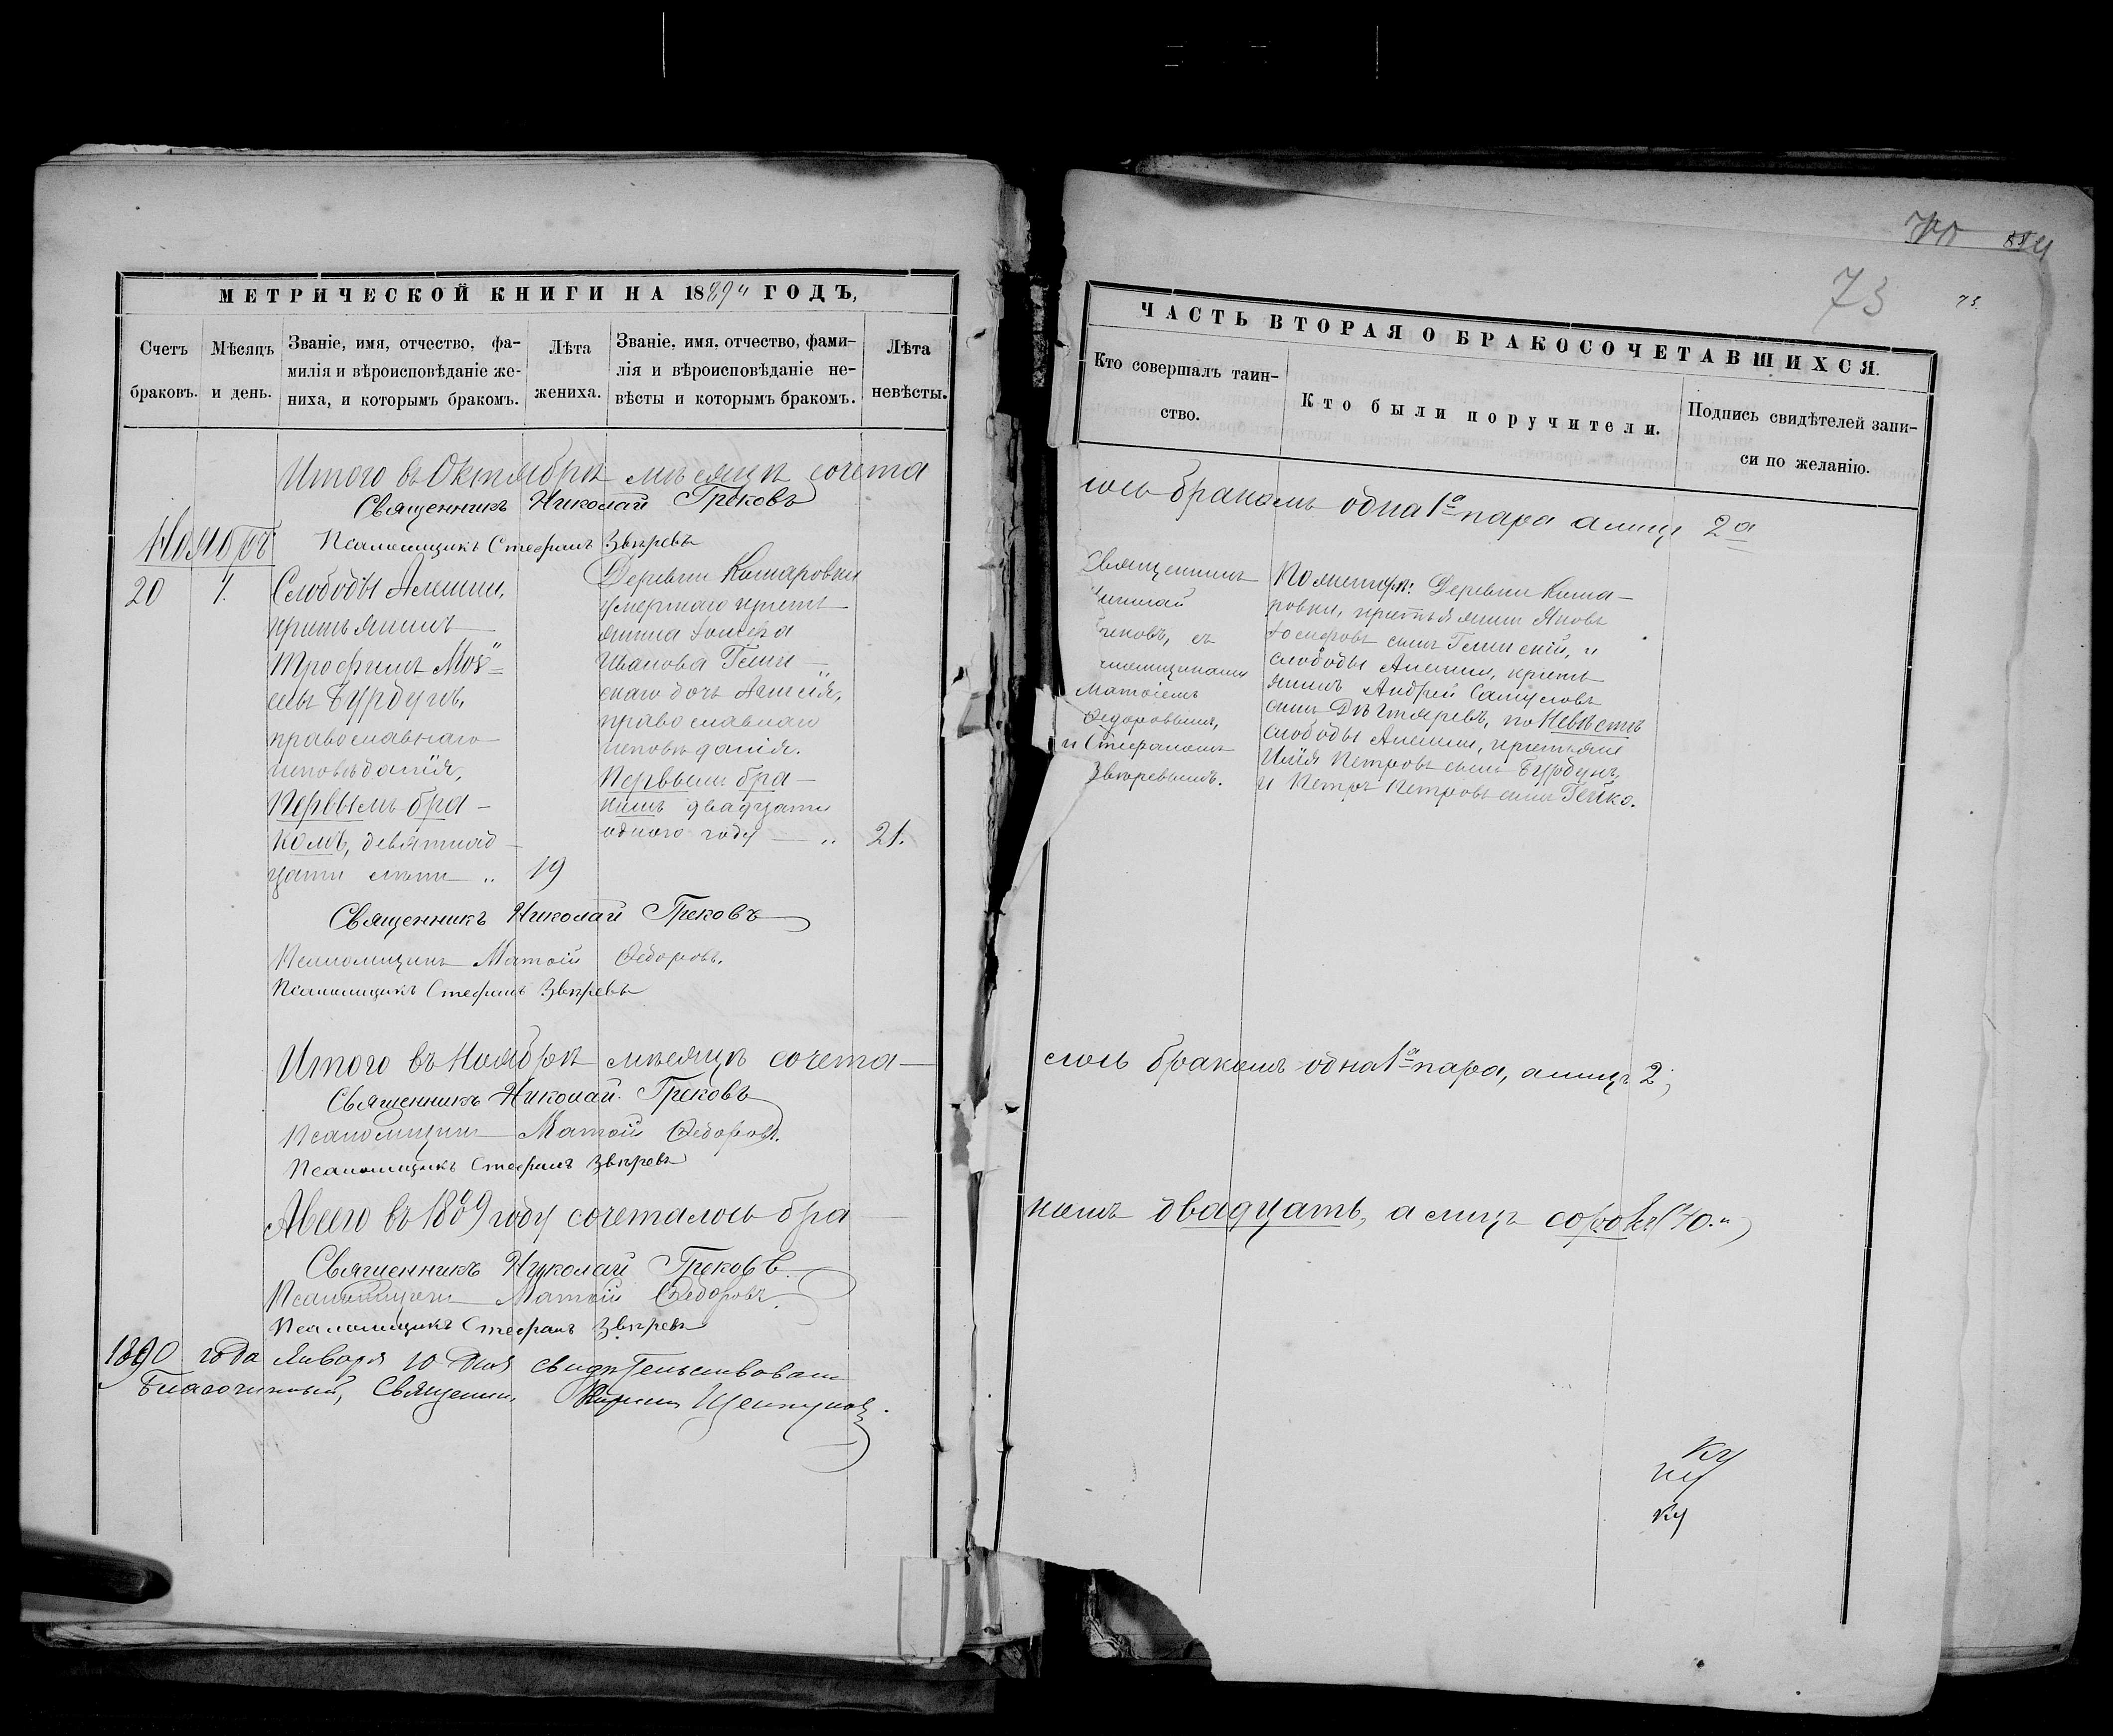 МЕТРИЧЕСКОЙ КНИГИ НА 1889 ГОДЪ,
Счетъ браковъ.
Мѣсяцъ и день.
Званіе, имя, отчество, фа-
милія и вѣроисповѣданіе же-
ниха, и которымъ бракомъ.
Лѣта жениха.
Званіе, имя, отчество, фами-
лія и вѣроисповѣданіе не-
вѣсты и которымъ бракомъ.
Лѣта невѣсты.
Итого въ Октябрѣ мѣсяцѣ сочета
Священникъ Николай Грековъ
Псаломщикъ Стефанъ Звѣревъ
Ноябрь
20
1.
Слободы Алешни,
крестьянинъ
Трофимъ
Бурдунъ,
православнаго
исповѣданія,
Первымъ бра-
комъ, девятнад-
цати лѣтъ „
19
Деревни Комаровки
умершаго кресть-
янина Іосифа
Иванова
дочь
православнаго
исповѣданія.
Первымъ бра-
комъ двадцати
одного году — „
21.
Священникъ Николай Грековъ
Псаломщикъ Матѳій Ѳедоровъ.
Псаломщикъ Стефанъ Звѣревъ
Итого въ Ноябрѣ мѣсяцѣ сочета-
Священникъ Николай Грековъ
Псаломщикъ Матѳій Ѳедоровъ.
Псаломщикъ Стефанъ Звѣревъ
А всего въ 1889 году сочеталось бра
Священникъ Николай Грековъ.
Псаломщикъ Матѳій Ѳедоровъ.
Псаломщикъ Стефанъ Звѣревъ
1890 года Января 10 дня свидѣтельствовалъ
Благочинный, Священникъ
73
73.
ЧАСТЬ ВТОРАЯ О БРАКОСОЧЕТАВШИХСЯ.
Кто совершалъ таин-
ство.
Кто были поручители.
Подпись свидѣтелей запи-
си по желанію.
лось бракомъ одна 1а пара а лицъ 2а
Священникъ
Николай
Грековъ, съ
псаломщиками
Матѳіемъ
Ѳедоровымъ,
и Стефаномъ
Звѣревымъ.
По женихѣ: Деревни Кома-
ровки, крестьянинъ Яковъ
Іосифовъ сынъ и
слободы Алешни, кресть-
янинъ Андрей Самуиловъ
сынъ Дѣгтяревъ, по Невѣстѣ
слободы Алешни, крестьяне
Илія Петровъ сынъ Бурдунъ,
и Петръ Петровъ сынъ Гейко.
лось бракомъ одна 1а пара, а лицъ 2;
комъ двадцать, а лицъ сорокъ (40.„)